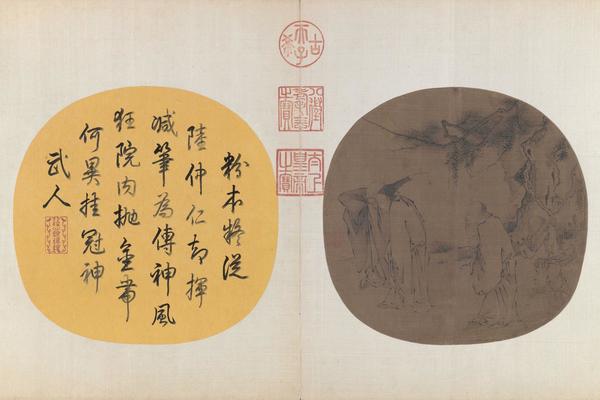 古希天子
八徵耄念之寶
太上皇帝之寶
粉本疑從
陸仲仁却揮
減筆為傳神風
狂院內拋金帶
何異挂冠神
武人